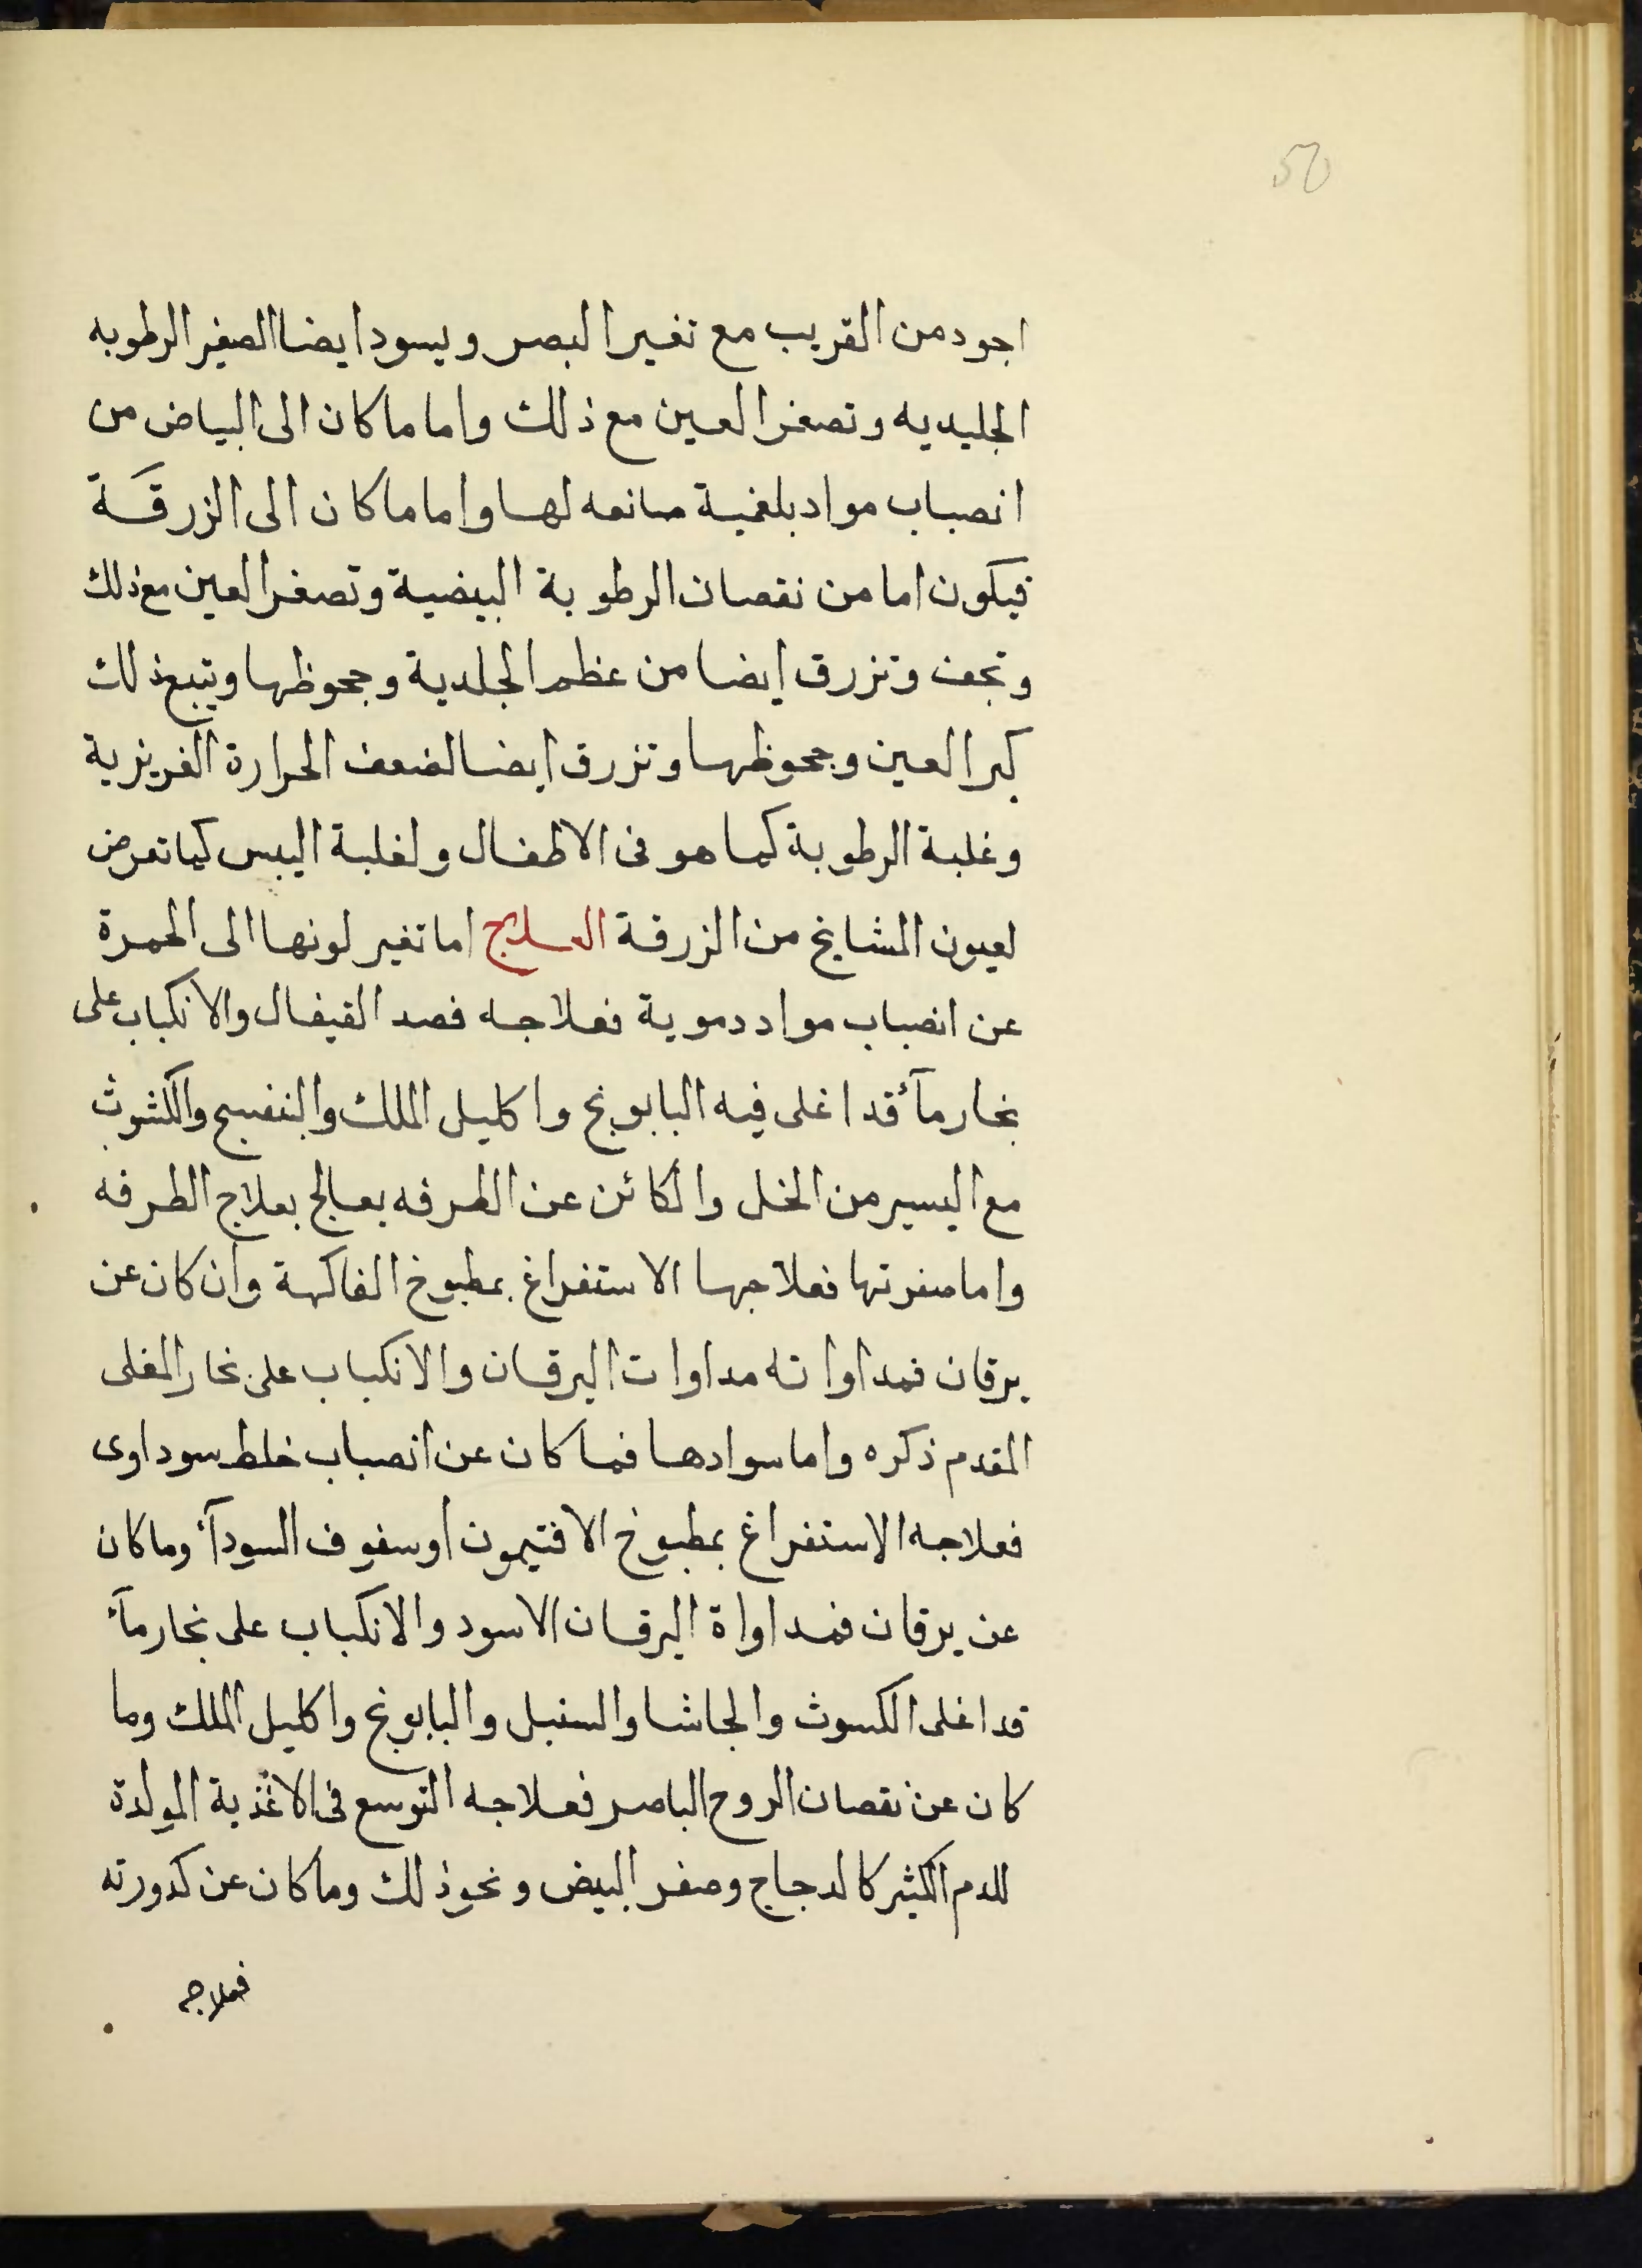 50
اجود من القريب مع تغير البصر ويسود ايضا الصغير الرطوبه
الجليديه وتصغر العين مع ذلك واما ما كان الى البياض من
انصباب مواد بلغمية صانعه لها واما ما كان الى الزرقة
فيكون اما من نقصان الرطوبة البيضية وتصغر العين مع ذلك
وتجف وتزرق ايضا من عظم الجلدية وجحوظها ويتبع ذلك
كبر العين وجحوظها وتزرق ايضا لضعف الحرارة الغريزية
وغلبة الرطوبة كما هو فى الاطفال ولغلبة اليبس كما تعرض
لعيون المشايخ من الزرقة العلاج اما تغير لونها الى الحمرة
عن انصباب مواد دموية فعلاجه فصد القيفال والانكباب على
بخار مآء قد اغلى فيه البابونج واكليل الملك والبنفسج والكشوث
مع اليسير من الخل والكائن عن الطرفه يعالج بعلاج الطرفه
واما صفرتها فعلاجها الاستفراغ بمطبوخ الفاكهة وان كان عن
يرقان فمداواته مداوات اليرقان والانكباب على بخار المغلى
المقدم ذكره واما سوادها فما كان عن انصباب خلط سوداوى
فعلاجه الاستفراغ بمطبوخ الافتيمون اوسفوف السودآء وما كان
عن يرقان فمداواة اليرقان الاسود والانكباب على بخار مآء
قد اغلى الكسوث والحاشا والسنبل والبابونج واكليل الملك وما
كان عن نقصان الروح الباصر فعلاجه التوسع فى الاغذية المولدة
للدم الكثير كالدجاج وصفر البيض ونحوذلك وما كان عن كدورته
فعلاجه